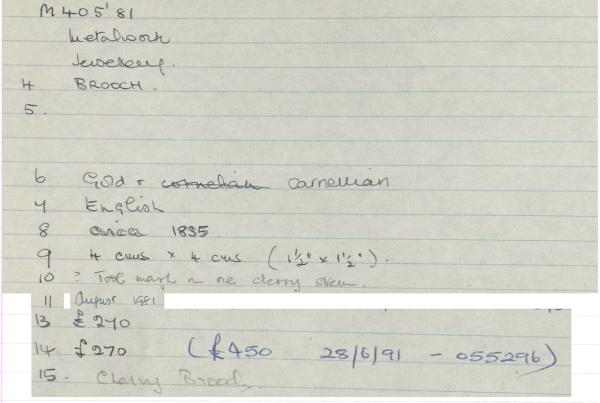 M405'81
Metalwork
Jewellery.
4 BROOCH.
5.
6 Gold + cornelian carnelian
7 English
8 circa 1835
9 4 cms × 4 cms (1½" × 1½").
10 ? Tool mark on one cherry stem.
11 August 1981
13 £270
14. £270 (£450 28/6/91 - 055296)
15. Cherry Brooch